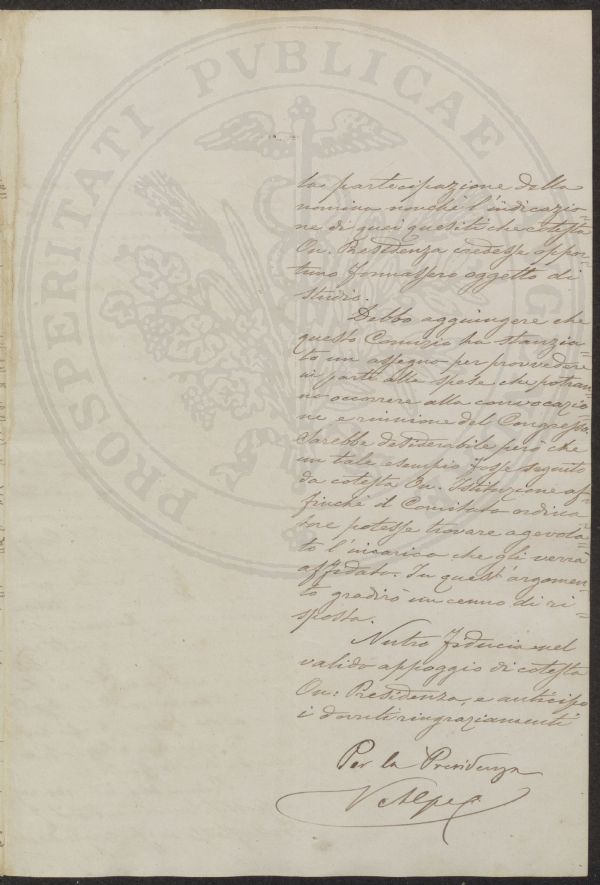 PROSPERITATI PVBLICAE
la partecipazione della
nomina nonché l'indicazio=
ne di quei quesiti che cotesta
On. Presidenza credesse oppor=
tuno formassero oggetto di
studio.
Debbo aggiungere che
questo Comizio ha stanzia=
to un assegno per provvedere
in parte alle spese che potran=
no occorrere alla convocazio
ne e riunione del Congresso.
Sarebbe desiderabile però che
un tale esempio fosse seguito
da cotesta On. Istituzione af=
finché il Comitato ordina
tore potesse trovare agevola=
to l'incarico che gli verrà
affidato. In quest'argomen=
to gradirò un cenno di ri=
sposta.
Nutro fiducia nel
valido appoggio di cotesta
On: Presidenza, e anticipo
i dovuti ringraziamenti
Per la Presidenza